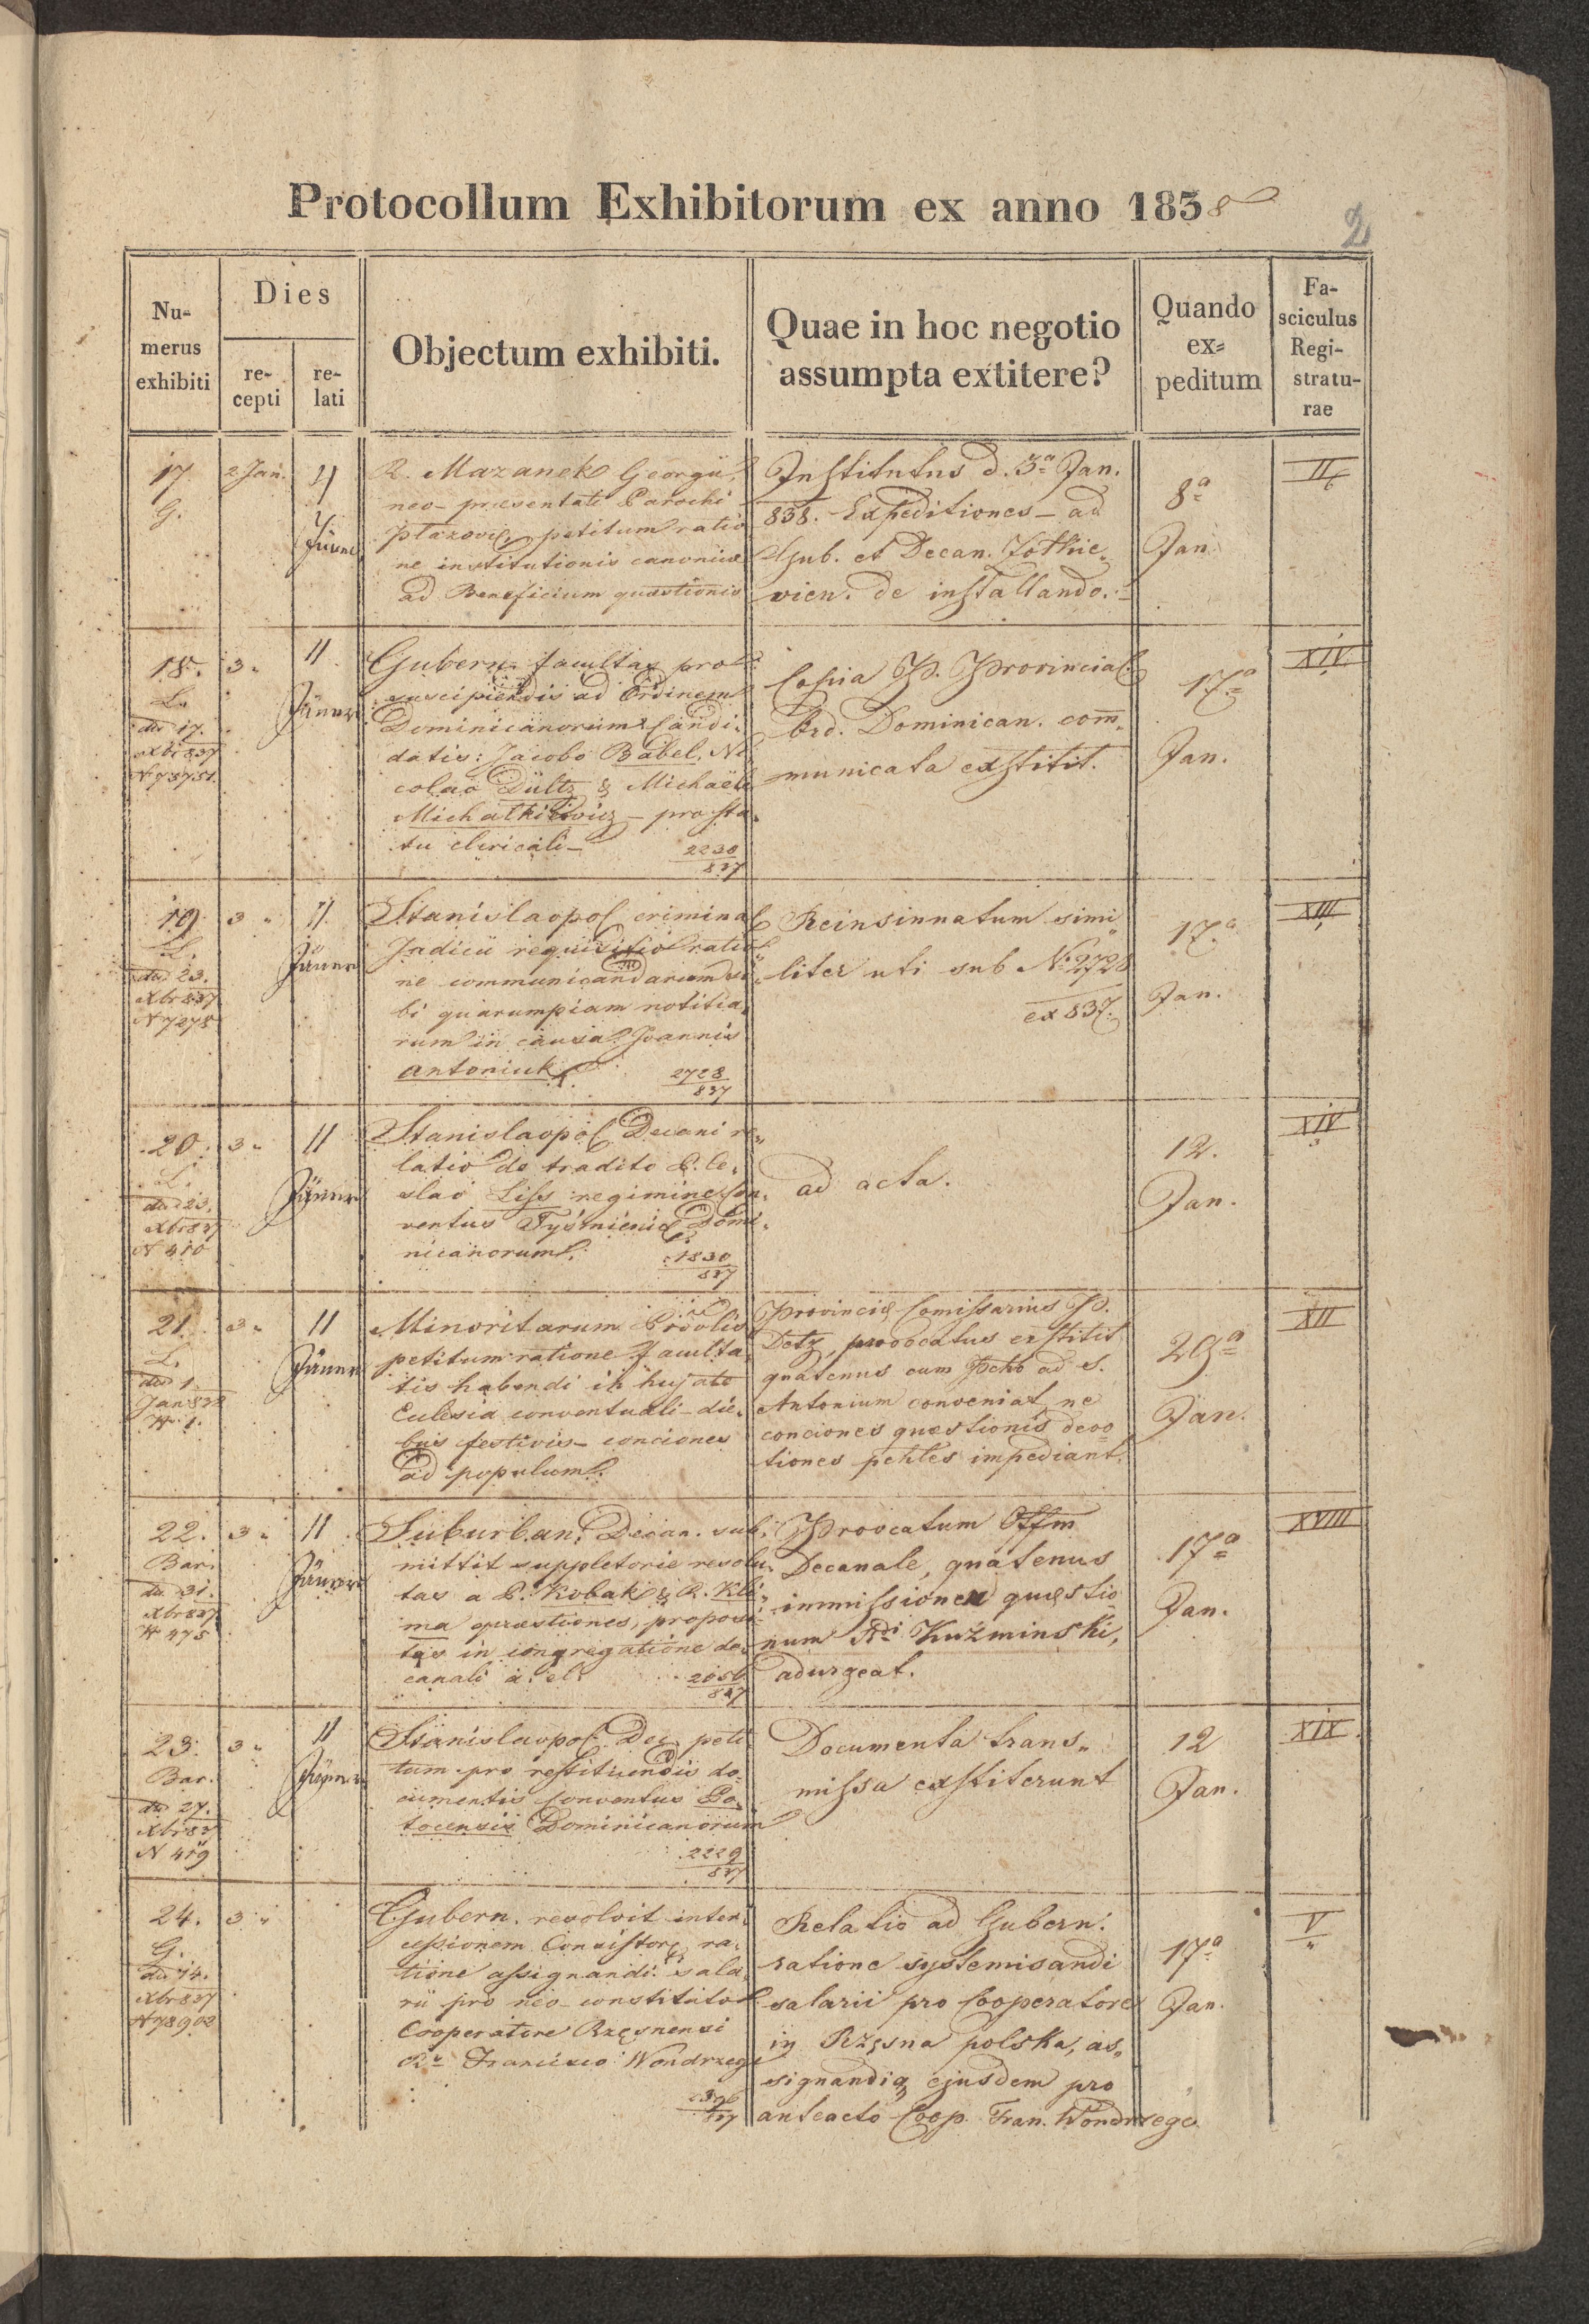 Protocollum Exhibitorum ex anno 1838
2
Numerus exhibiti
Dies
recepti
relati
Objectum exhibiti.
Quae in hoc negotio
assumpta extitere?
Quando
ex=
peditum
Fa-
sciculus
Regi-
stratu-
rae
17
G.
2 Jan.
4
Jänner
R. Mazanek Georgii,
neo-praesentati Parochi
petitum ratio
ne institutionis canonicae
ad Beneficium quaestionis
Institutus d. 3a Jan.
838. Expeditiones - ad
Gub. et Decan. Zolkie„
vien. de installando.
8a
Jan.
II
18.
L.
dto 17.
xbr 837
3„
11
Jänner
Gubern. facultas pro
suscipiendis ad Ordinem
Dominicanorum Candi„
datis: Jacobo Babel, Ni
colao Dültz & Michaële
pro sta„
tu clericali-
2230
837
Copia P. Provinciali
Ord. Dominican. com̅„
municata exstitit.
17a
Jan.
XIV.
19
L.
dto 23.
xbr 837
N 7278
3„
11
Jänner
Stanislaopol. criminal.
Judicii requisitio ratio
ne communicandarum si„
bi quarumpiam notitia„
rum in causa Joannis
Antoniuk
2728
837
Reinsinnatum simi„
liter uti sub No 2728
ex 837.
17a
Jan.
XIII
20.
L.
dto 23.
xbr 837
N 410
3„
11
Jänner
Stanislaopol. Decani re„
latio de tradito P. Ce„
slao Liss regimine Con„
ventus Tyśmienic. Domi„
nicanorum.
1830
837
ad acta.
12.
Jan.
XIV
21.
L.
dto 1
Jan 838
N. 1.
3„
11
Jänner
Minoritarum
petitum ratione faculta„
tis habendi in hujate
Ecclesia conventuali - die„
bus festivis - conciones
ad populum.
Provinciae Comissarius P.
Detz, provocatus exstitit
quatenus cum Pcho ad S.
Antonium conveniat, ne
conciones quaestionis devo„
tiones impediant.
29a
Jan.
XII
22.
Bar.
do 31.
xbr 837
N 475
3„
11
Jänner
Suburban. Decan. sub„
mittit suppletorie resolu„
tas a P. Kobak & R. Kli„
ma quaestiones, proposi„
tas in congregatione de„
canali a. el.
2056
837
Provocatum Offm
Decanale, quatenus
immissionem quaestio
num Rdi Kuźminski,
adurgeat.
17a
Jan.
XVIII
23.
Bar.
dto 27.
xbr 837
N 419
3„
11
Jänner
Stanislaopol. Dec. peti
tum pro restituendis do„
cumentis Conventus Po„
tocensis Dominicanorum
2229
837
Documenta trans„
missa exstiterunt
12
Jan.
XIX
24.
G.
dto 14.
xbr 837
N 78902
3„
Gubern. resolvit inter„
cessionem Consistorii ra„
tione assignandi sala„
rii pro neo-constituto
Cooperatore Rzęsnensi
Francisco Wondrzege
837
Relatio ad Gubern.
ratione systemisandi
salarii pro Cooperatore
in Rzęsna polska, as„
signandiq ejusdem pro
anteacto Coop. Fran. Wondrzege.
17a
Jan.
V